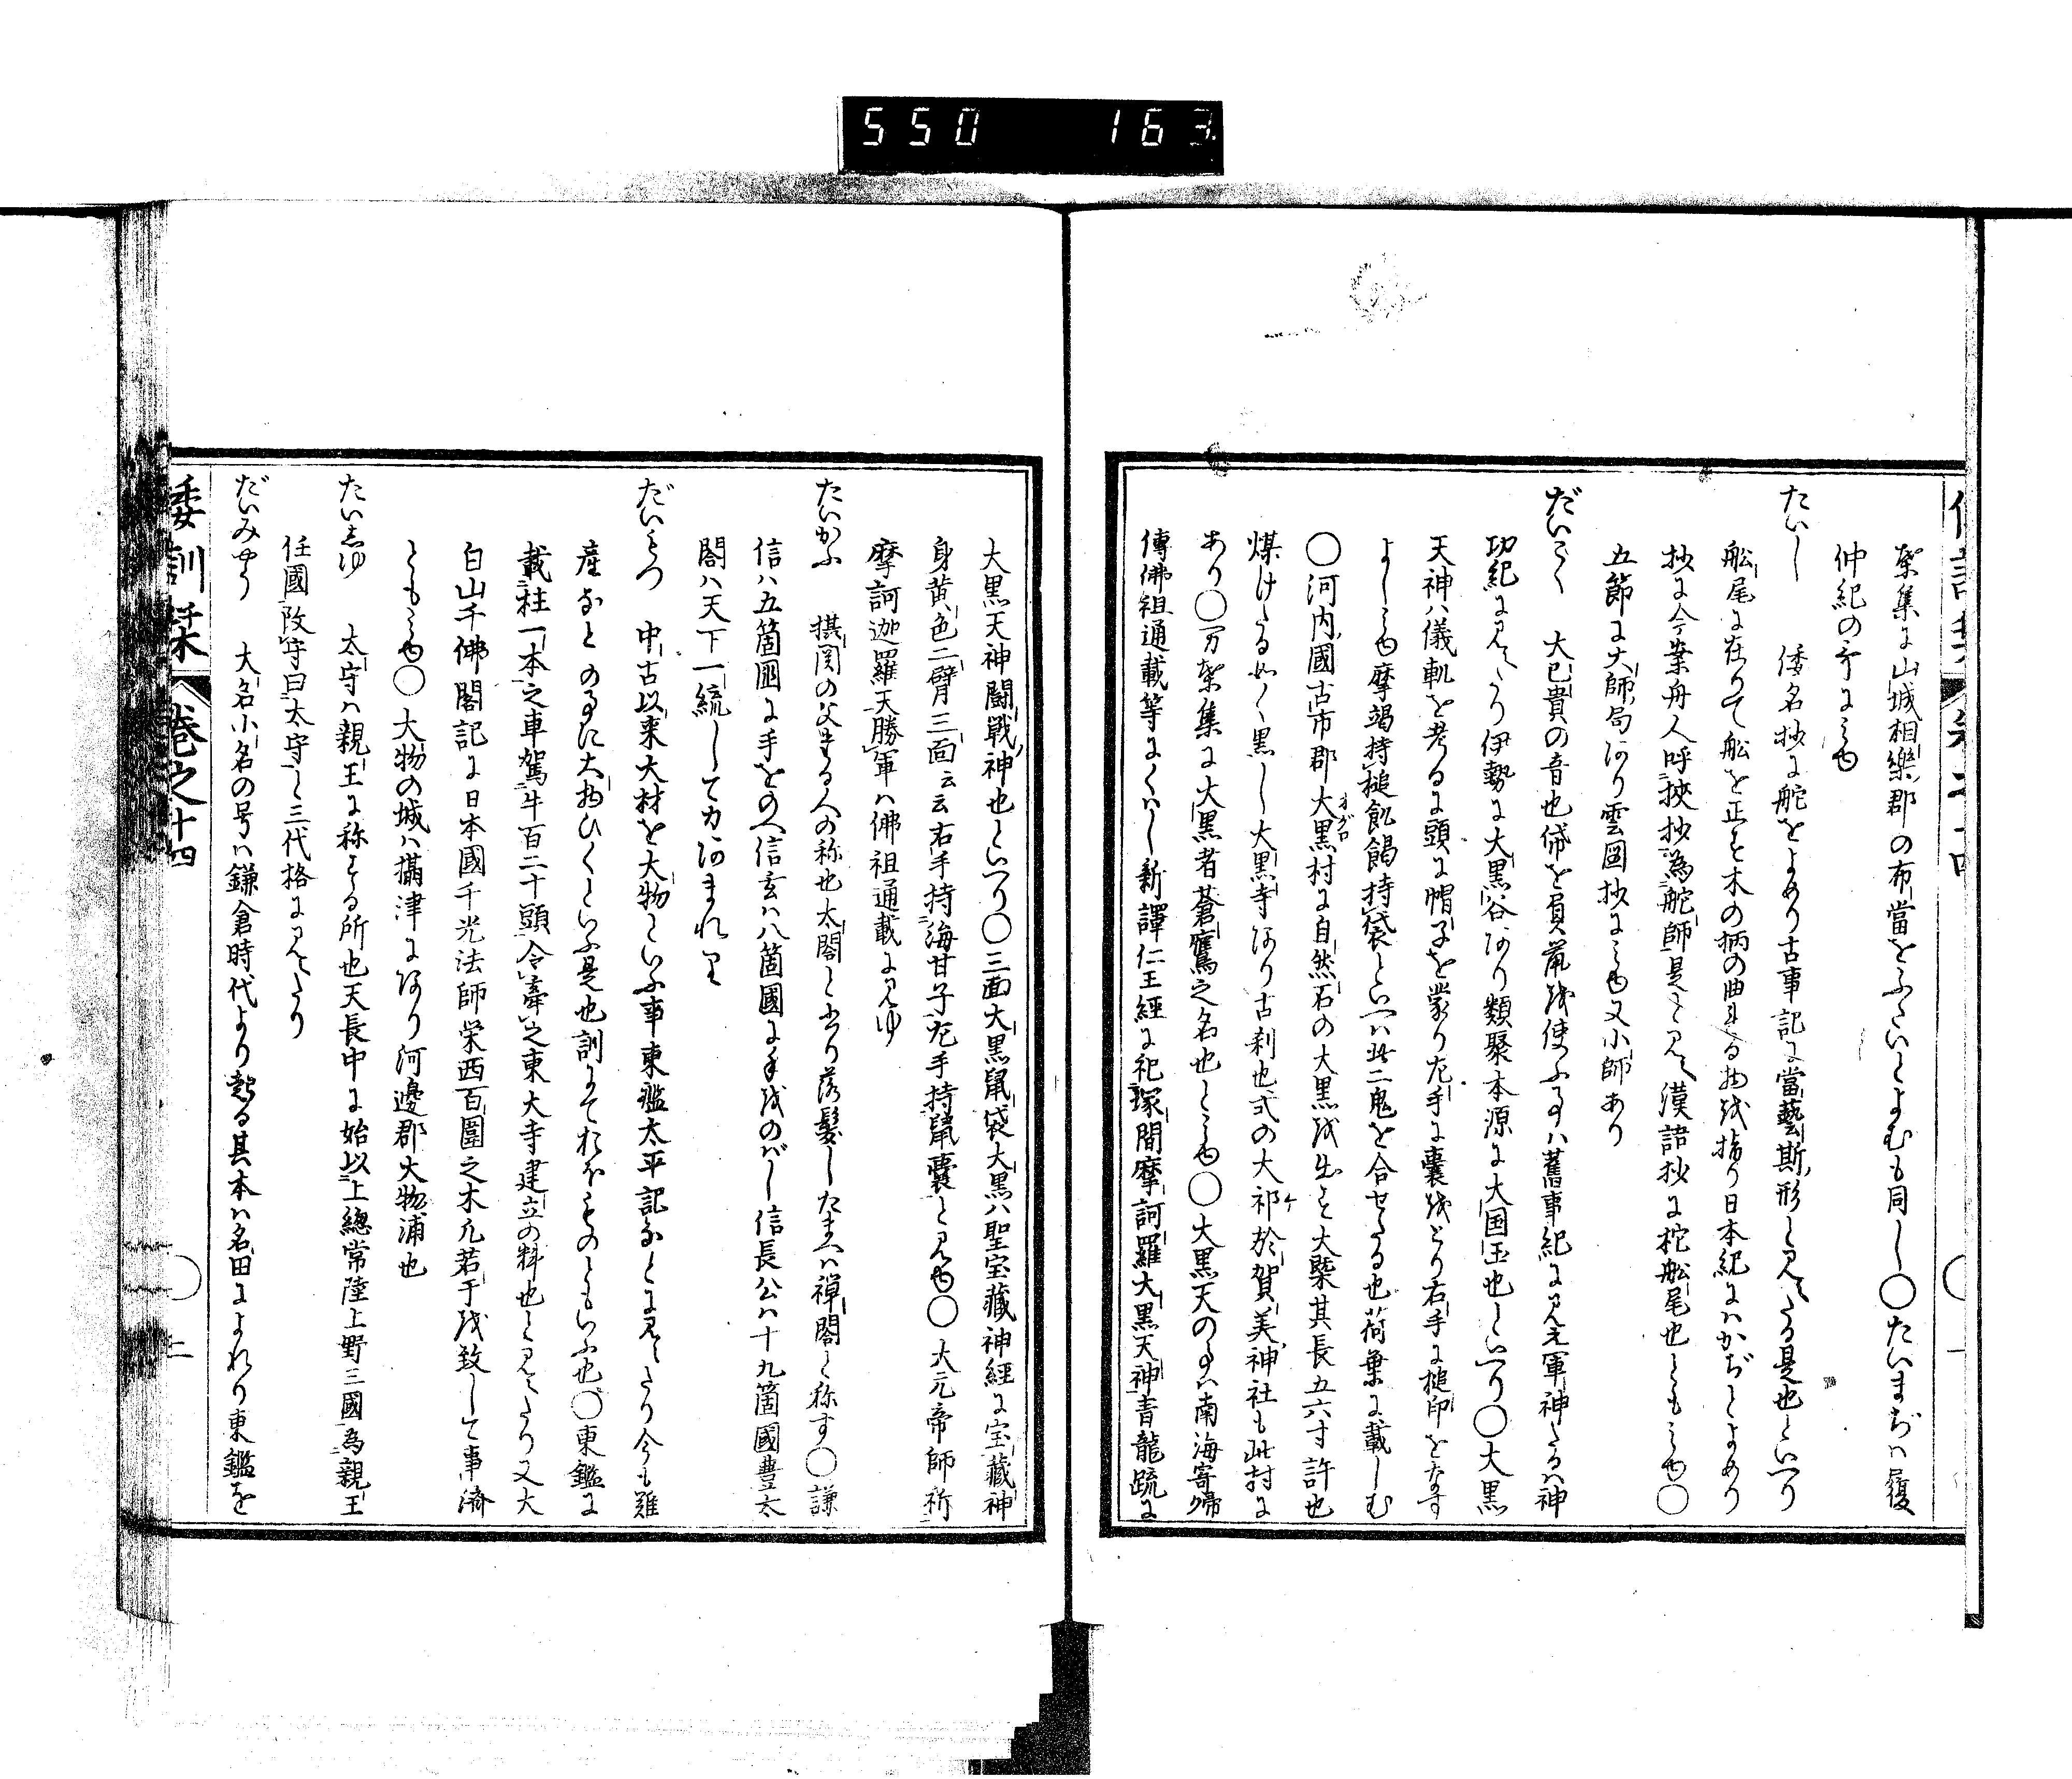 550 163
葉集に山城相樂郡の布當をふたいとよむも同し〇たいまぢハ履
仲紀の哥にミゆ
たいし 倭名抄に舵をよめり古事記に當藝斯形と見えたる是也といへり
舩尾に在りて舩を正す木の柄の曲れる物を指り日本紀にハかぢとよめり
抄に今案舟人呼挾抄為舵師是と見え漢語抄に柁舩尾也ともミゆ〇
五節に大師局あり雲圖抄にミゆ又小師あり
だいこく 大已貴の音也帒を負䑕を使ふ事ハ舊事紀に見え軍神たるハ神
功紀に見えたり伊勢に大黒谷あり類聚本源に大国玉也といへり〇大黒
天神ハ儀軌を考るに頭に帽子を蒙り左手に嚢をとり右手に槌印をなす
よしミゆ摩竭持槌飢餲持袋といへハ此二鬼を合せたる也荷葉に載しむ
〇河内國古市郡大黒村に自然石の大黒を出す大槩其長五六寸許也
オグロ
煤けたる如く黒し大黒寺あり古刹也式の大祁於賀美神社も此村に
ケ
あり〇万葉集に大黒者蒼鷹之名也とミゆ〇大黒天の事ハ南海寄帰
傳佛祖通載等にくハし新譯仁王經に祀塚間摩訶羅大黒天神青龍疏に
大黒天神闘戰神也といへり〇三面大黒鼠袋大黒ハ聖宝藏神經に宝藏神
身黄色二臂三面云云右手持海甘子左手持鼠嚢と見ゆ〇大元帝師祈
摩訶迦羅天勝軍ハ佛祖通載に見ゆ
たいかふ 摂関の父なる人の称也太閤と書り落髪したまへハ禅閤と称す〇謙
信ハ五箇國に手をのへ信玄ハ八箇國に手をのばし信長公ハ十九箇國豊太
閤ハ天下一統して力あまれり
だいもつ 中古以来大材を大物といふ事東鑑太平記なとに見えたり今も難
産なとの事に大物ひくといふ是也訓にておほものともいふ也〇東鑑に
載柱一本之車駕牛百二十頭令牽之東大寺建立の料也と見えたり又大
白山千佛閣記に日本國千光法師栄西百圍之木凡若干を致して事済
ともミゆ〇大物の城ハ攝津にあり河邊郡大物浦也
たいしゆ 太守ハ親王に称する所也天長中に始以上總常陸上野三國為親王
任國改守曰太守と三代格に見えたり
だいみやう 大名小名の号ハ鎌倉時代より起る其本ハ名田によれり東鑑を
倭訓栞 巻之十四 二